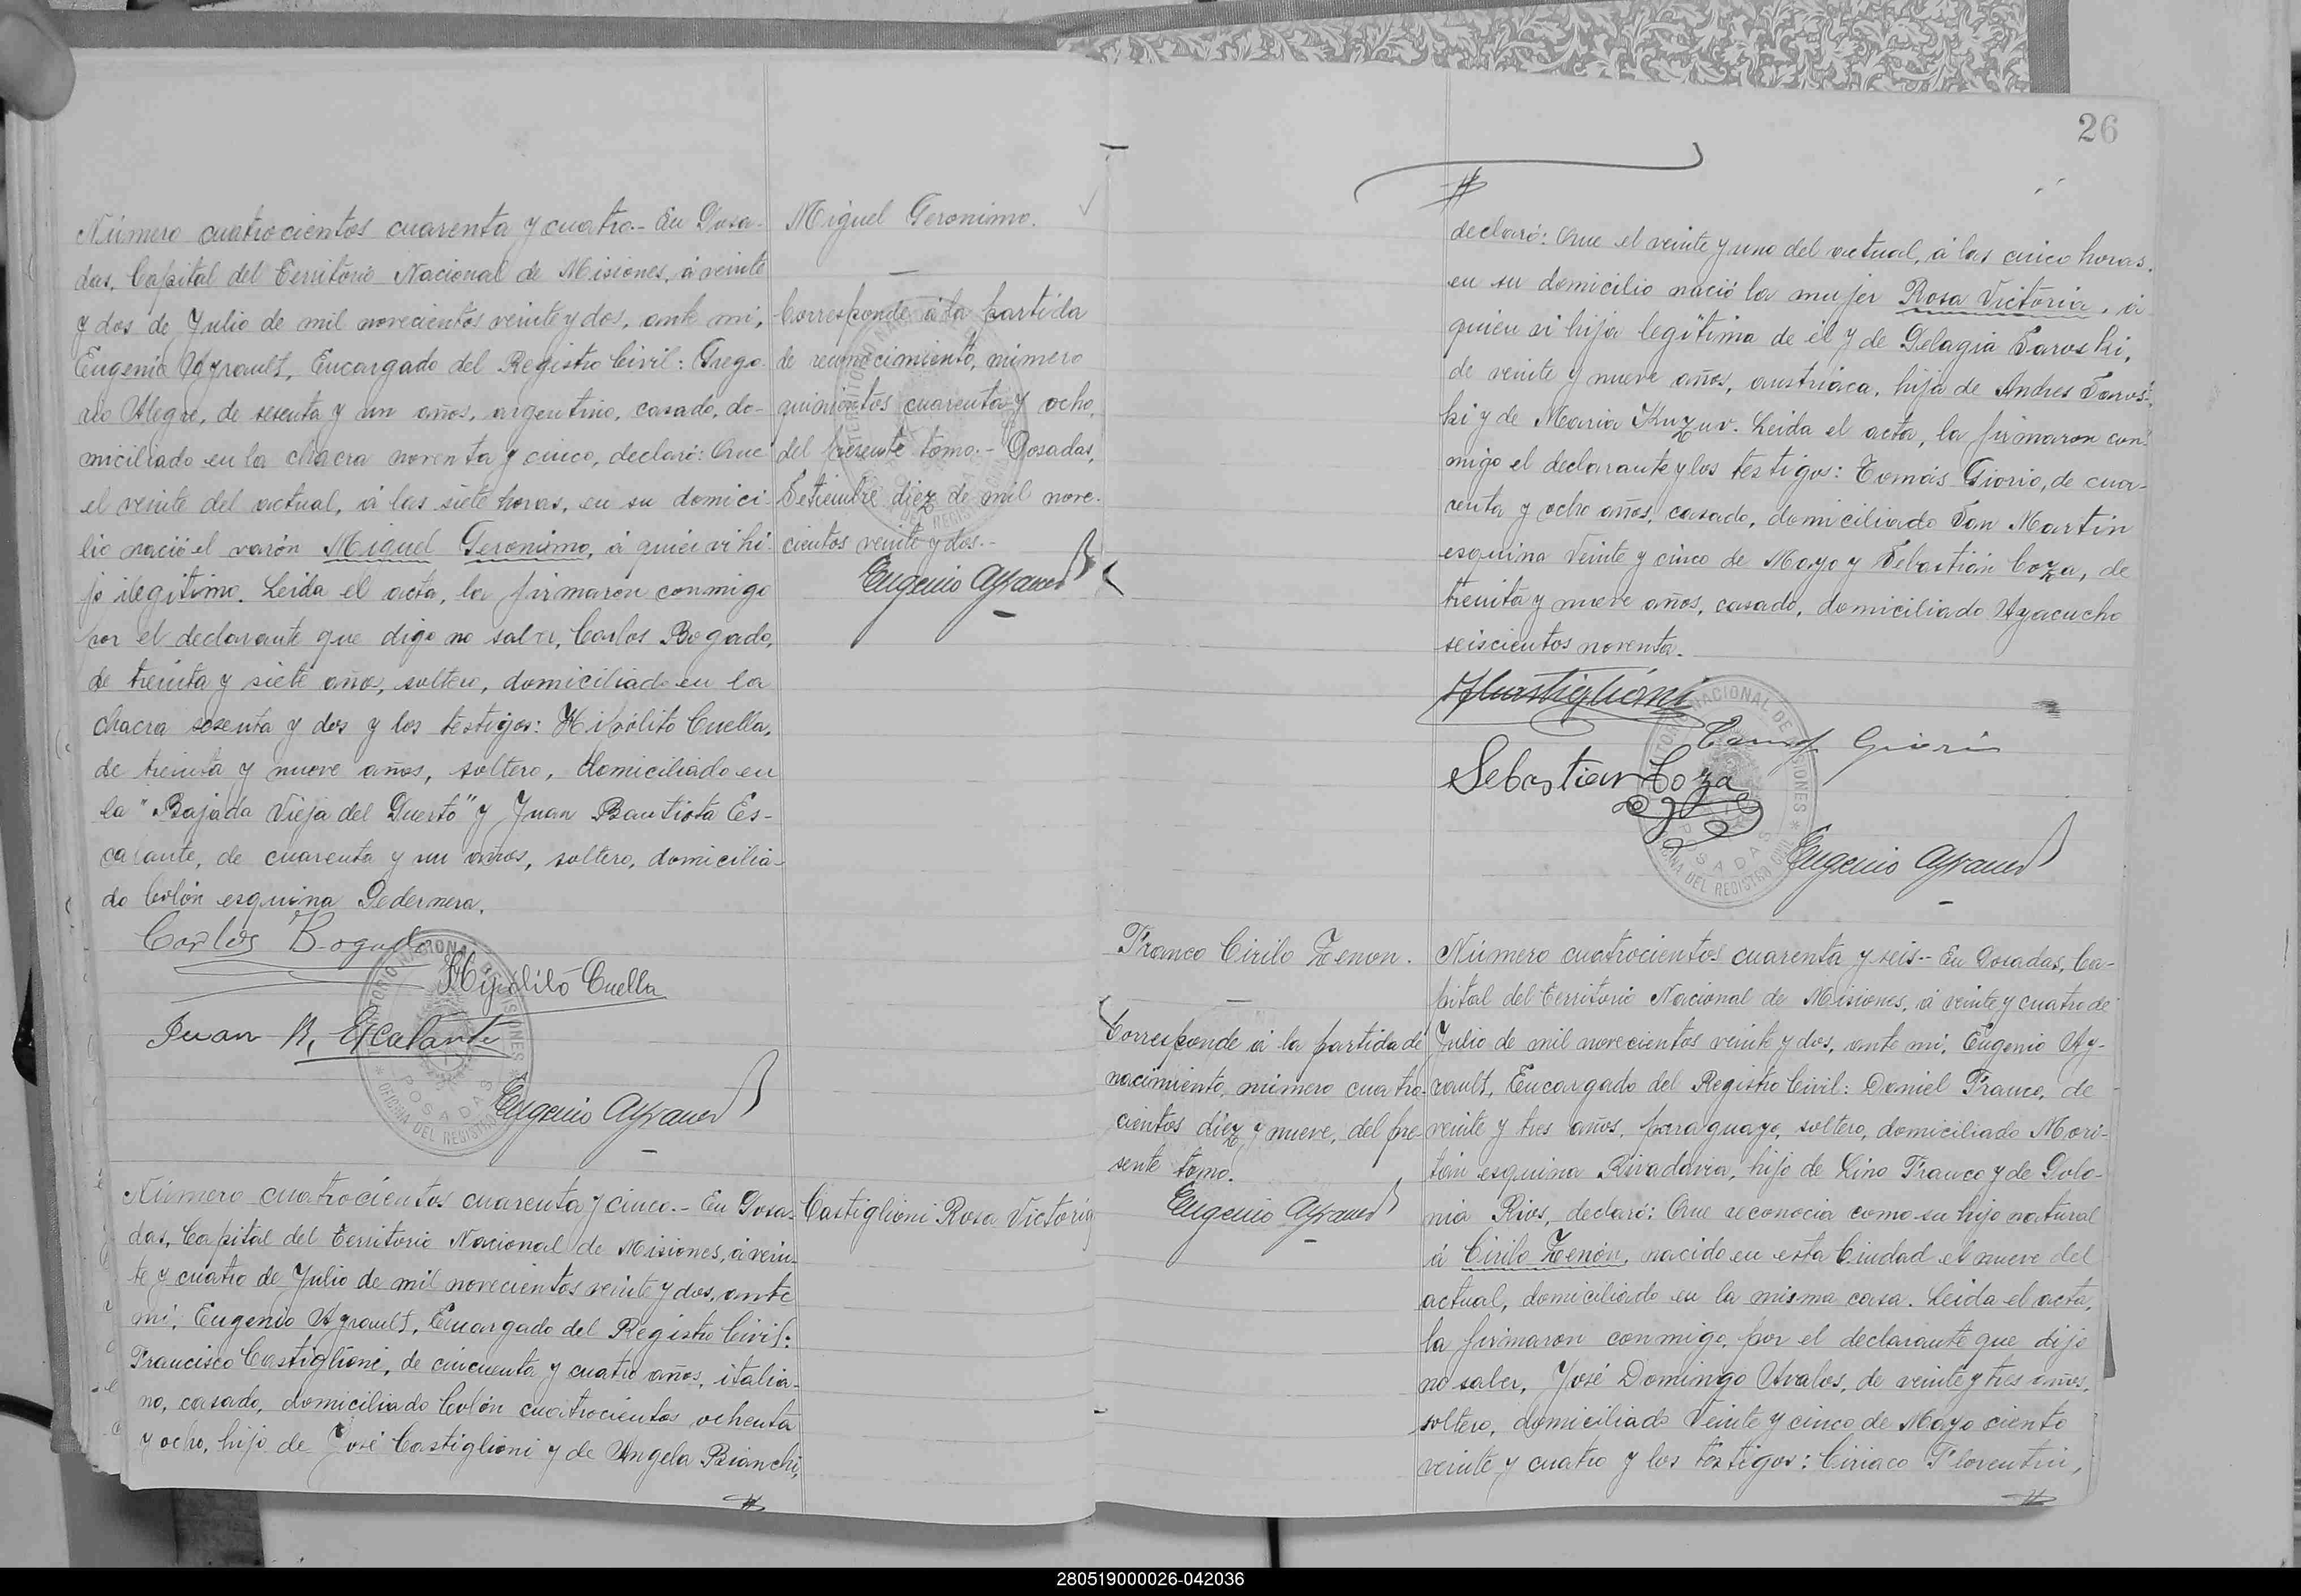 Número cuatrocientos cuarenta y cuatro.- En Posa-
das, Capital del Territorio Nacional de Misiones, á veinte
y dos de Julio de mil novecientos veinte y dos, ante mi,
Eugenio Ayrault, Encargado del Registro Civil: Grego-
rio Alegre, de sesenta y un años, argentino, casado, do-
miciliado en la chacra noventa y cinco, declaró: Que
el veinte del actual, á las siete horas, en su domici-
lio nació el varón Miguel Geronimo, á quien vi hi-
jo ilegítimo. Leida el acta, la firmaron conmigo
por el declarante que digo no saber, Carlos Bogado,
de treinta y siete años, soltero, domiciliado en la
chacra sesenta y dos y los testigos: Hipólito Cuella,
de treinta y nueve años, soltero, domiciliado en
la "Bajada Vieja del Puerto" y Juan Bautista Es-
calante, de cuarenta y un años, soltero, domicilia-
do Colón esquina Pedernera.
Carlos Bogado
Hipólito Cuella
Juan B. Escalante
Eugenio Ayrault
Miguel Geronimo.
Corresponde á la partida
de reconocimiento, número
quinientos cuarenta y ocho,
del presente tomo.- Posadas,
Setiembre diez de mil nove-
cientos veinte y dos.-
Eugenio Ayrault
Número cuatrocientos cuarenta y cinco.- En Posa-
das, Capital del Territorio Nacional de Misiones, á vein-
te y cuatro de Julio de mil novecientos veinte y dos, ante
mi, Eugenio Ayrault, Encargado del Registro Civil:
Francisco Castiglioni, de cincuenta y cuatro años, italia-
no, casado, domiciliado Colón cuatrocientos ochenta
y ocho, hijo de José Castiglioni y de Angela Bianchi,
Castiglioni Rosa Victoria
26
declaró: Que el veinte y uno del actual, á las cinco horas,
en su domicilio nació la mujer Rosa Victoria, á
quien vi hija legítima de él y de Pelagia Saroski,
de veinte y nueve años, austriaca, hija de Andres Saros-
ki y de Maria Kuzuv. Leida el acta, la firmaron con-
migo el declarante y los testigos: Tomás Giorio, de cua-
renta y ocho años, casado, domiciliado San Martin
esquina Veinte y cinco de Mayo y Sebastián Coza, de
treinta y nueve años, casado, domiciliado Ayacucho
seiscientos noventa.
Castiglioni
Tomas Giorio
Sebastian Coza
Eugenio Ayrault
Franco Cirilo Zenon.
Corresponde á la partida de
nacimiento, número cuatro-
cientos diez y nueve, del pre-
sente tomo.
Eugenio Ayrault
Número cuatrocientos cuarenta y seis.- En Posadas, Ca-
pital del Territorio Nacional de Misiones, á veinte y cuatro de
Julio de mil novecientos veinte y dos, ante mi, Eugenio Ay-
rault, Encargado del Registro Civil: Daniel Franco, de
veinte y tres años, paraguayo, soltero, domiciliado Mori-
tán esquina Rivadavia, hijo de Lino Franco y de Polo-
nia Rios, declaró: Que reconocia como su hijo natural
á Cirilo Zenón, nacido en esta Ciudad el nueve del
actual, domiciliado en la misma casa. Leida el acta,
la firmaron conmigo, por el declarante que dijo
no saber, José Domingo Avalos, de veinte y tres años,
soltero, domiciliado Veinte y cinco de Mayo ciento
veinte y cuatro y los testigos: Ciriaco Florentin,
280519000026-042036